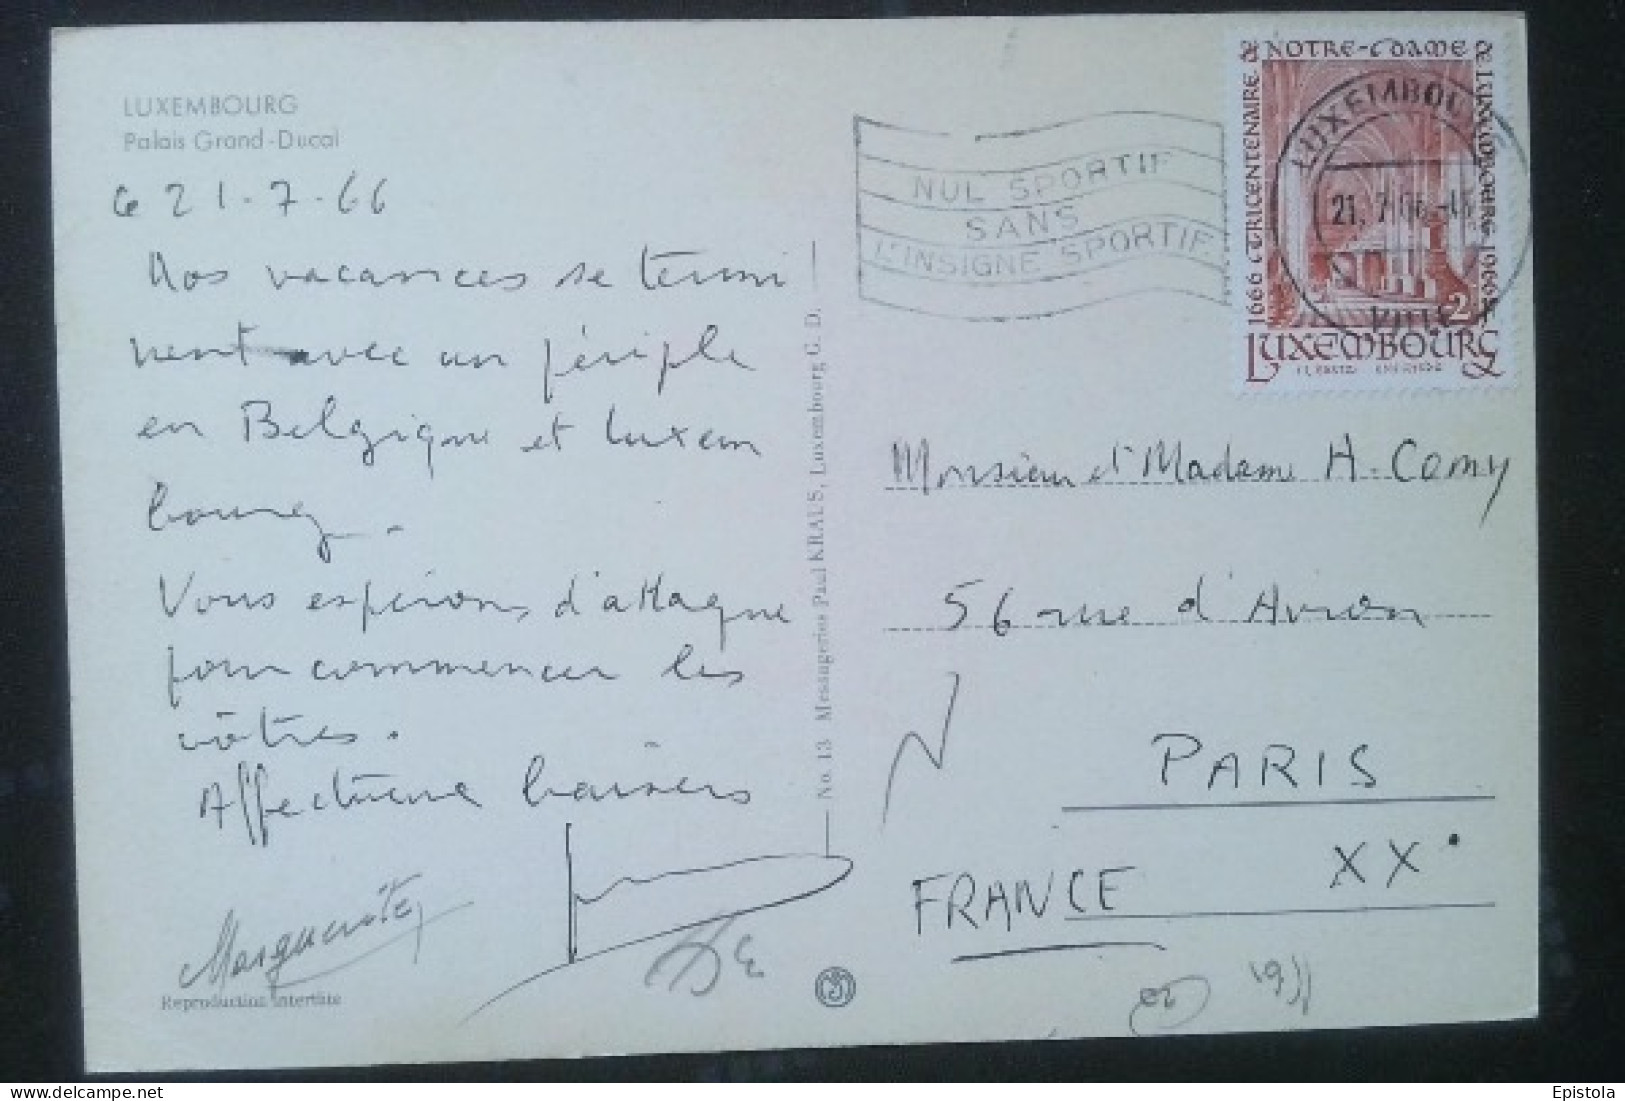 LUXEMBOURG
Palais Grand-Ducal
le 21-7-66
Nos vacances se termi
nent avec un périple
en Belgique et Luxem
bourg.
Vous espérons d'attaque
pour commencer les
vôtres.
Affectueux baisers
Marguerite
Reproduction interdite
No. 13 Messageries Paul KRAUS, Luxembourg G. D.
NUL SPORTIF
SANS
L'INSIGNE SPORTIF
LUXEMBOURG
21. 7 66
VILLE
1666 TRICENTENAIRE DE NOTRE-DAME DE LUXEMBOURG 1966
2F
LUXEMBOURG
Monsieur et Madame A. Comy
56 rue d'Avron
PARIS
XX°
FRANCE
Epistola